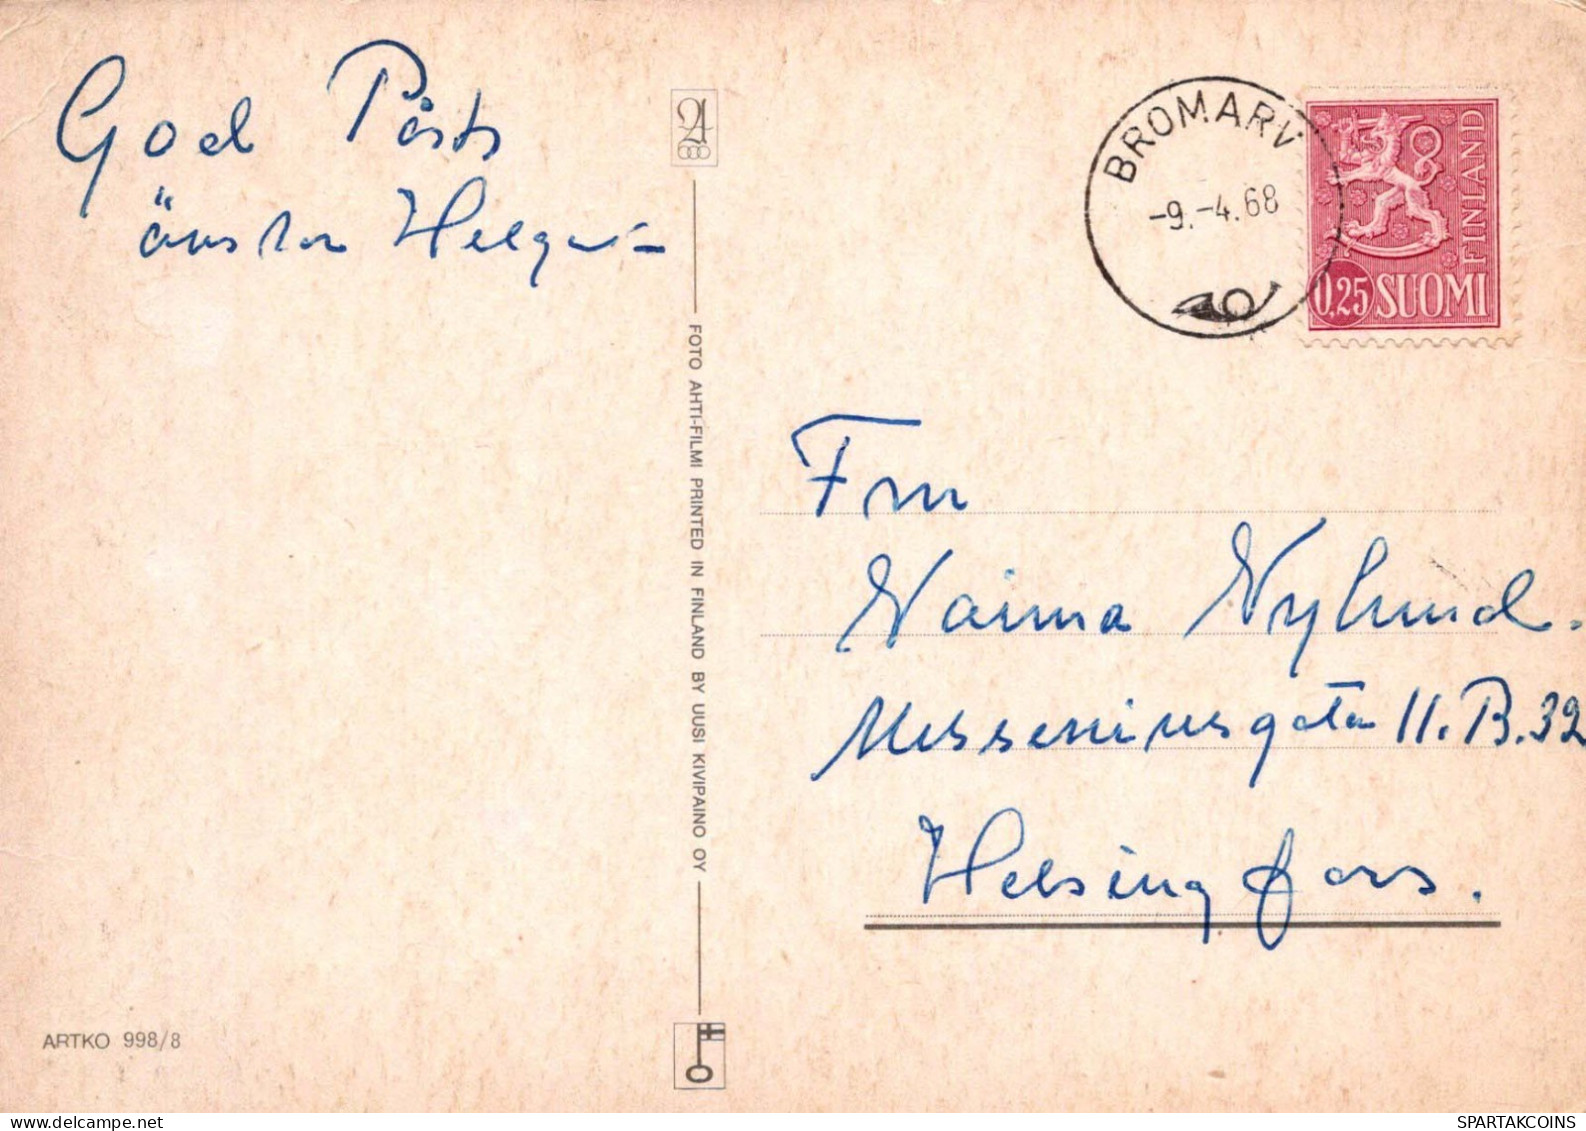 God Påsk
önskar Helga
FOTO AHTI-FILMI PRINTED IN FINLAND BY UUSI KIVIPAINO OY
ARTKO 998/8
BROMARV
-9.-4.68
FINLAND
0,25 SUOMI
Fru
Naima Nylund.
Messeniusgatan 11.B.32
Helsingfors.
SPARTAKCOINS